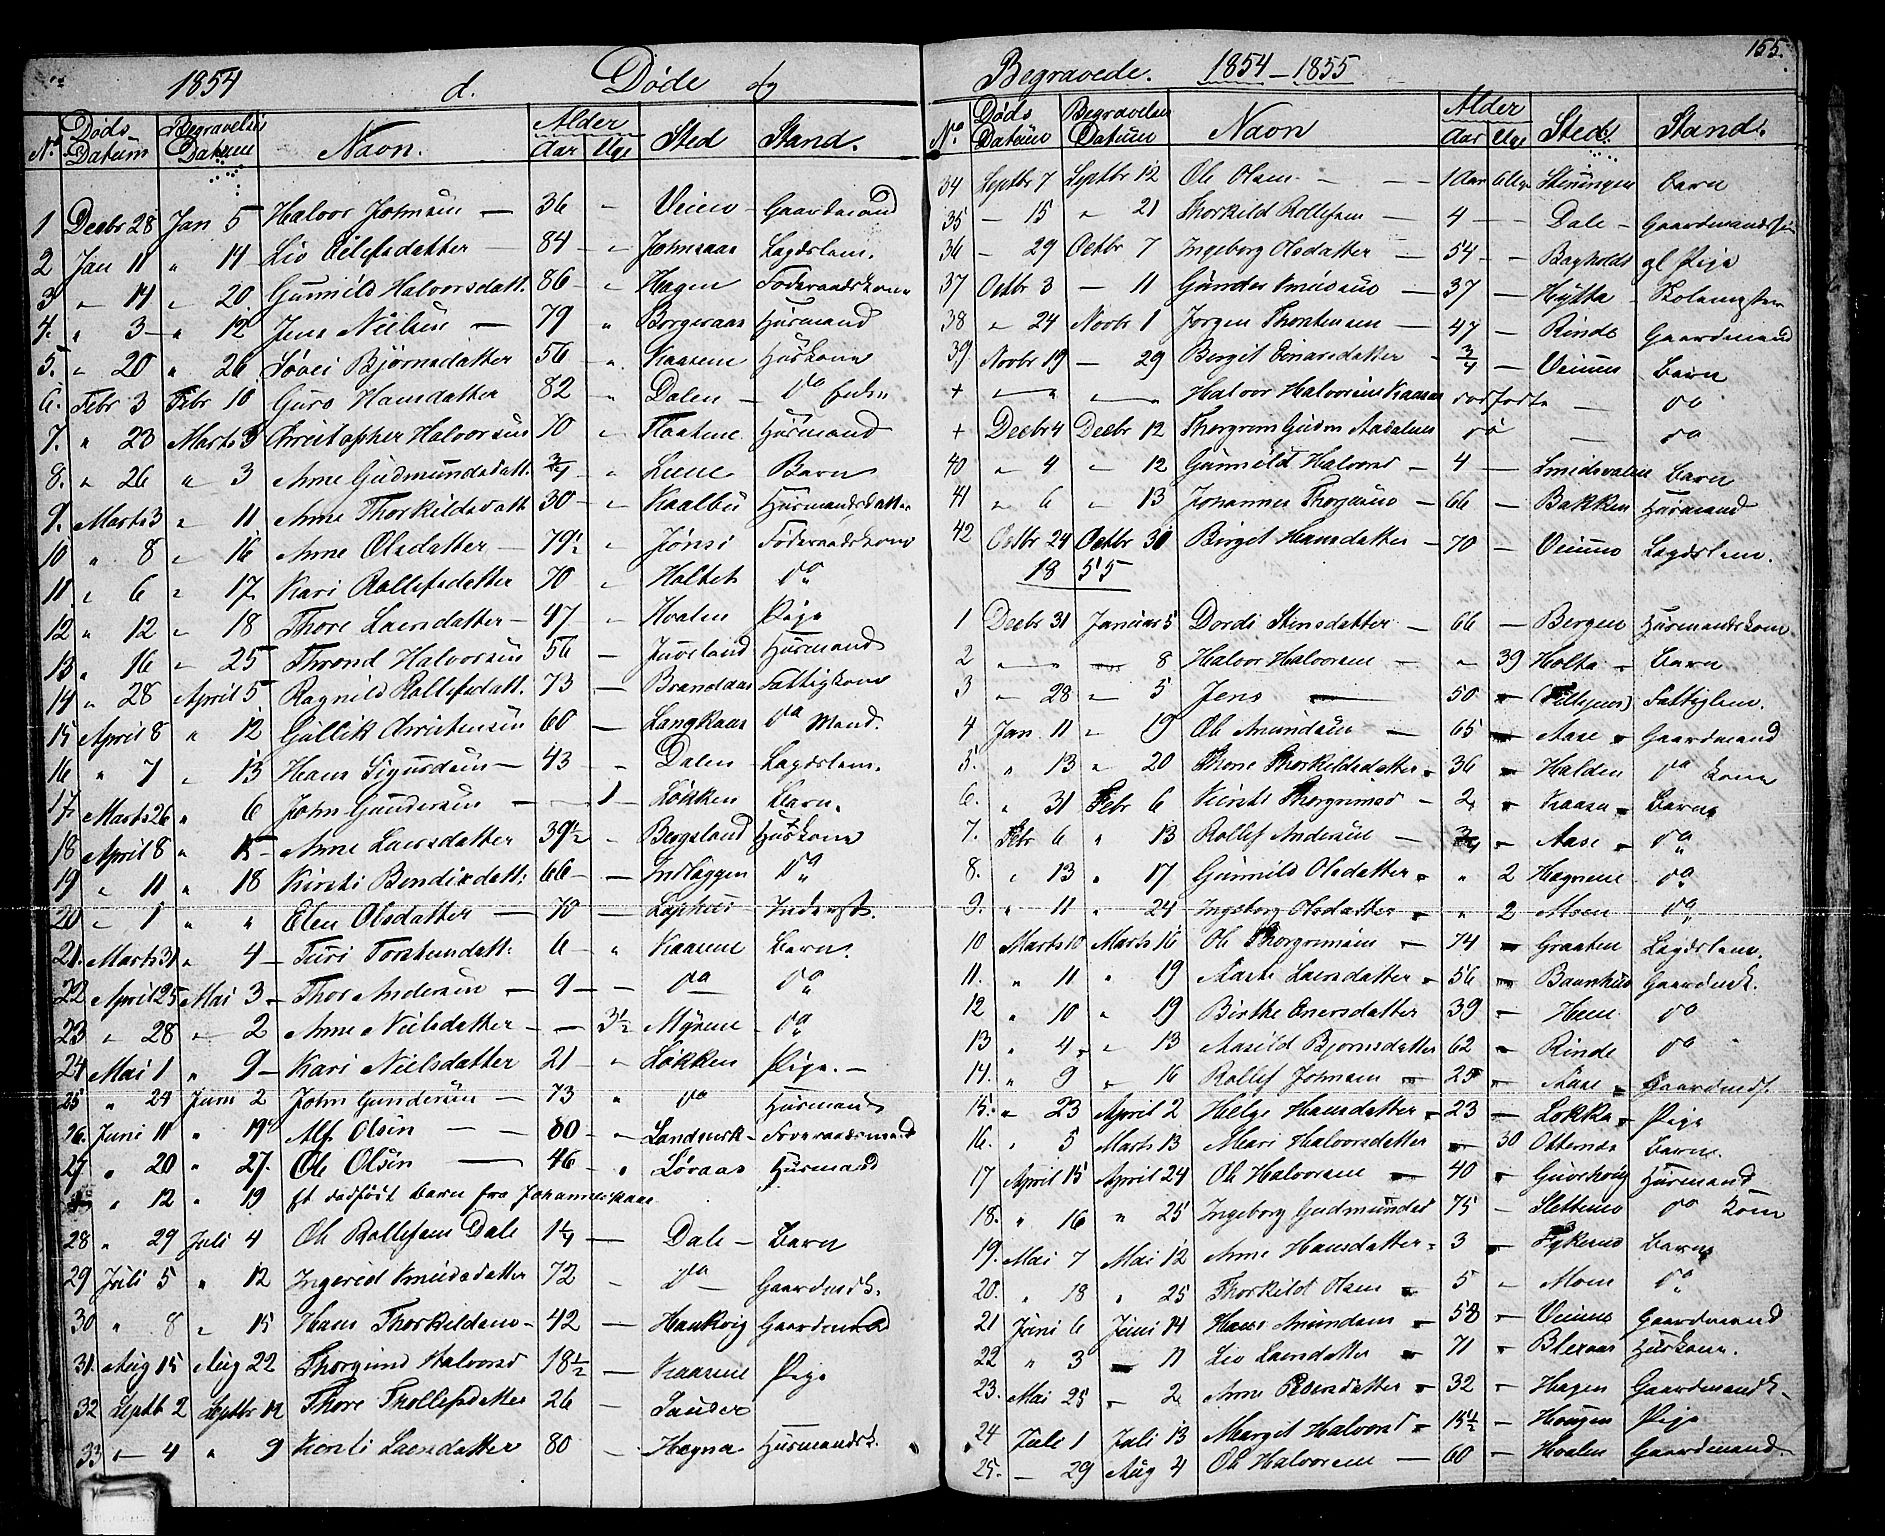 1854 d. Døde og
No Døds Datum Begravelses Datum Navn. Alder Aar Uge Sted Stand.
1 Decbr 28 Jan 5 Halvor Johnsen — 36 Veien Gaardmand
2 Jan 11 " 14 Liv Eilefsdatter 84 " Johnsaas Lægdslem.
3 " 14 " 20 Gunnild Halvorsdatt. 86 " Hagen Føderaadskone
4. " 3 " 12 Jens Nielsen — 79 " Borgeraas Huusmand
5. " 20 " 26 Løvei Bjørnsdatter 56 " Kaasene Huuskone
6. Febr 3 Febr 10 Guro Hansdatter 82 " Dalen do Enke
7. " 23 Marts 3 Christopher Halvorsen 70 " Flaatene Huusmand
8. " 26 " 3 Anne Gudmundsdatt. 3/4 " Lene Barn
9. Marts 3 " 11 Anne Thorkildsdatt 30 " Kaalbu Huusmandsdatter
10 " 8 " 16 Anne Olsdatter 79½ " Jønsi Føderaadskone
11 " 6 " 17 Kari Rollefsdatter 70 " Haltet do
12 " 12 " 18 Thore Larsdatter 47 " Hvalen Pige
13 " 16 " 25 Thrond Halvorsen 56 — Juveland Huusmand
14 " 28 April 5 Ragnild Rollefsdatt. 73 — Brandaas Fattigkone
15 April 8 " 12 Gullik Christensen 60 — Langkaas do Mand.
16 " 7 " 13 Hans Sigurdsen 43 Dalen Lægdslem.
17 Marts 26 " 6 John Gundersen — 1 Løkken Barn.
18 April 8 " 15 Anne Larsdatter 39½ " Bergsland Huuskone
19 " 11 " 18 Kirsti Bendixdatt: 66 — Indlæggen do
20 " 1 " " Elen Olsdatter — 70 — Inderst.
21. Marts 31 " 4 Turi Torstensdatt: 6 " Kaasene Barn.
22 April 25 Mai 3 Thor Andersen 9 do do
23 " 28 " 2 Anne Nielsdatter — 3½ Myrene do
24 Mai 1 " 9 Kari Nielsdatter 21 " Løkken Pige.
25 " 24 Juni 2 John Gundersen 73 " do Huusmand
26. Juni 11 " 19 Alf Olsen — 80 Landverk Foderaadsmand
27 " 20 " 27. Ole Olsen — 46 " Løvaas Huusmand
" 12 " 19 Et dødfødt barn fra Johanneskaas
28 " 29 Juli 4 Ole Rollefsen Dale 1¼ — Dale Barn
29 Juli 5 " 12 Ingerid Knudsdatter 72 do Gaardmdk.
30 " 8 " 15 Hans Thorkildsen 42 — Haukvig Gaardmand
31. Aug 15 Aug 22 Thorgund Halvorsd 18½ — Kaasene Pige
32 Septb 2 Septbr 12 Thore Thollefsdatter 26 Sauder
33 " 4 " 9 Kirsti Larsdatter 80 Hægna Huusmandsk.
Begravede. 1854–1855 155.
No. Døds Datum Begravelses Datum Navn Alder Aar Uge Sted Stand.
34 Septbr 7 Septbr 12 Ole Olsen — 1 Aar 6 Uge Barn
35 — 15 " 21 Thorkild Rollefsen 4 — Dale Gaardmandssøn
36 " 29 Octbr 7 Ingeborg Olsdatter 54 — Bagholdt gl Pige
37 Octbr 3 — 11 Gunder Knudsen 37 Hytta
38 " 24 Novbr 1 Jørgen Thorstensen 47 Rinde Gaardmand
39 Novbr 19 — 29 Bergit Einarsdatter 3/4 Veiene Barn
+ Halvor Halvorsen Kaasen dødfødt do
+ Decbr 4 Decbr 12 Thorgrim Gudm Aadalnes do do
40 " 4 " 12 Gunnild Halvorsd — 4 Smedsvalen Barn
41 " 6 " 13 Johannes Thorsen 66 Bakken Huusmand
42 Octbr 24 Octbr 30 Birgit Hansdatter 70 — Veiene Lægdslem.
1855
1 Decbr 31 Januar 5 Dordi Stensdatter — 66 — Bergen Huusmandskone
2 8 Halvor Halvorsen " 39 Holta Barn
3 " 28 " 5 Jens 50 Fattiglem.
4 Jan. 11 " 19 Ole Amundsen 65 Aase Gaardmand
5. " 13 " 20 Thone Thorkildsdatter 36 Halden do Kone
6. " 31 Febr 6 Kirsti Thorgrimsd 2 Kaasa Barn
7. Febr 6 " 13 Rollef Andersen 3/4 Aase do
8. " 13 " 17 Gunnild Olsdatter " 2 Hægnene do
9. " 11 " 24 Ingeborg Olsdatter " 2 Moen do
10 Marts 10 Marts 16 Ole Thorgrimsen 74 Graaten Lægdslem.
11. " 11 " 19 Aaste Larsdatter 56 Baunhus Gaardmk.
12 " 10 " 19 Birthe Enersdatter 39 Hem do
13 " 4 " 13 Aasild Bjørnsdatter 62 Rinde do
14. " 9 " 16 Rollef Johnsen 25 Aase Gaardmds.
15. " 23 April 2 Helge Hansdatter 23 Løkka Pige
16. " 5 Marts 13 Mari Halvorsdatter 30 Ottenæs Barn.
17 April 15 April 24 Ole Halvorsen 40 Huusmand
18. " 16 " 25 Ingeborg Gudmundsd 75 Sletteno do Kone
19. Mai 7 Mai 12 Anne Hansdatter 3 Fykerud Barn
20. " 18 " 25 Thorkild Olsen 5 Moen do
21 Juni 6 Juni 14 Hans Amundsen 58 Veiene Gaardmand
22 " 3 11 Liv Larsdatter 71 Blexaas Huuskone.
23. Mai 25 " 2 Anne Pedersdatter 32 Hagen Gaardmandk.
24 Juli 1 Juli 13 Margit Halvorsd 15½ Haugen Pige
25. — 29 Aug 4 Ole Halvorsen — 60 Hvalen Gaardmand